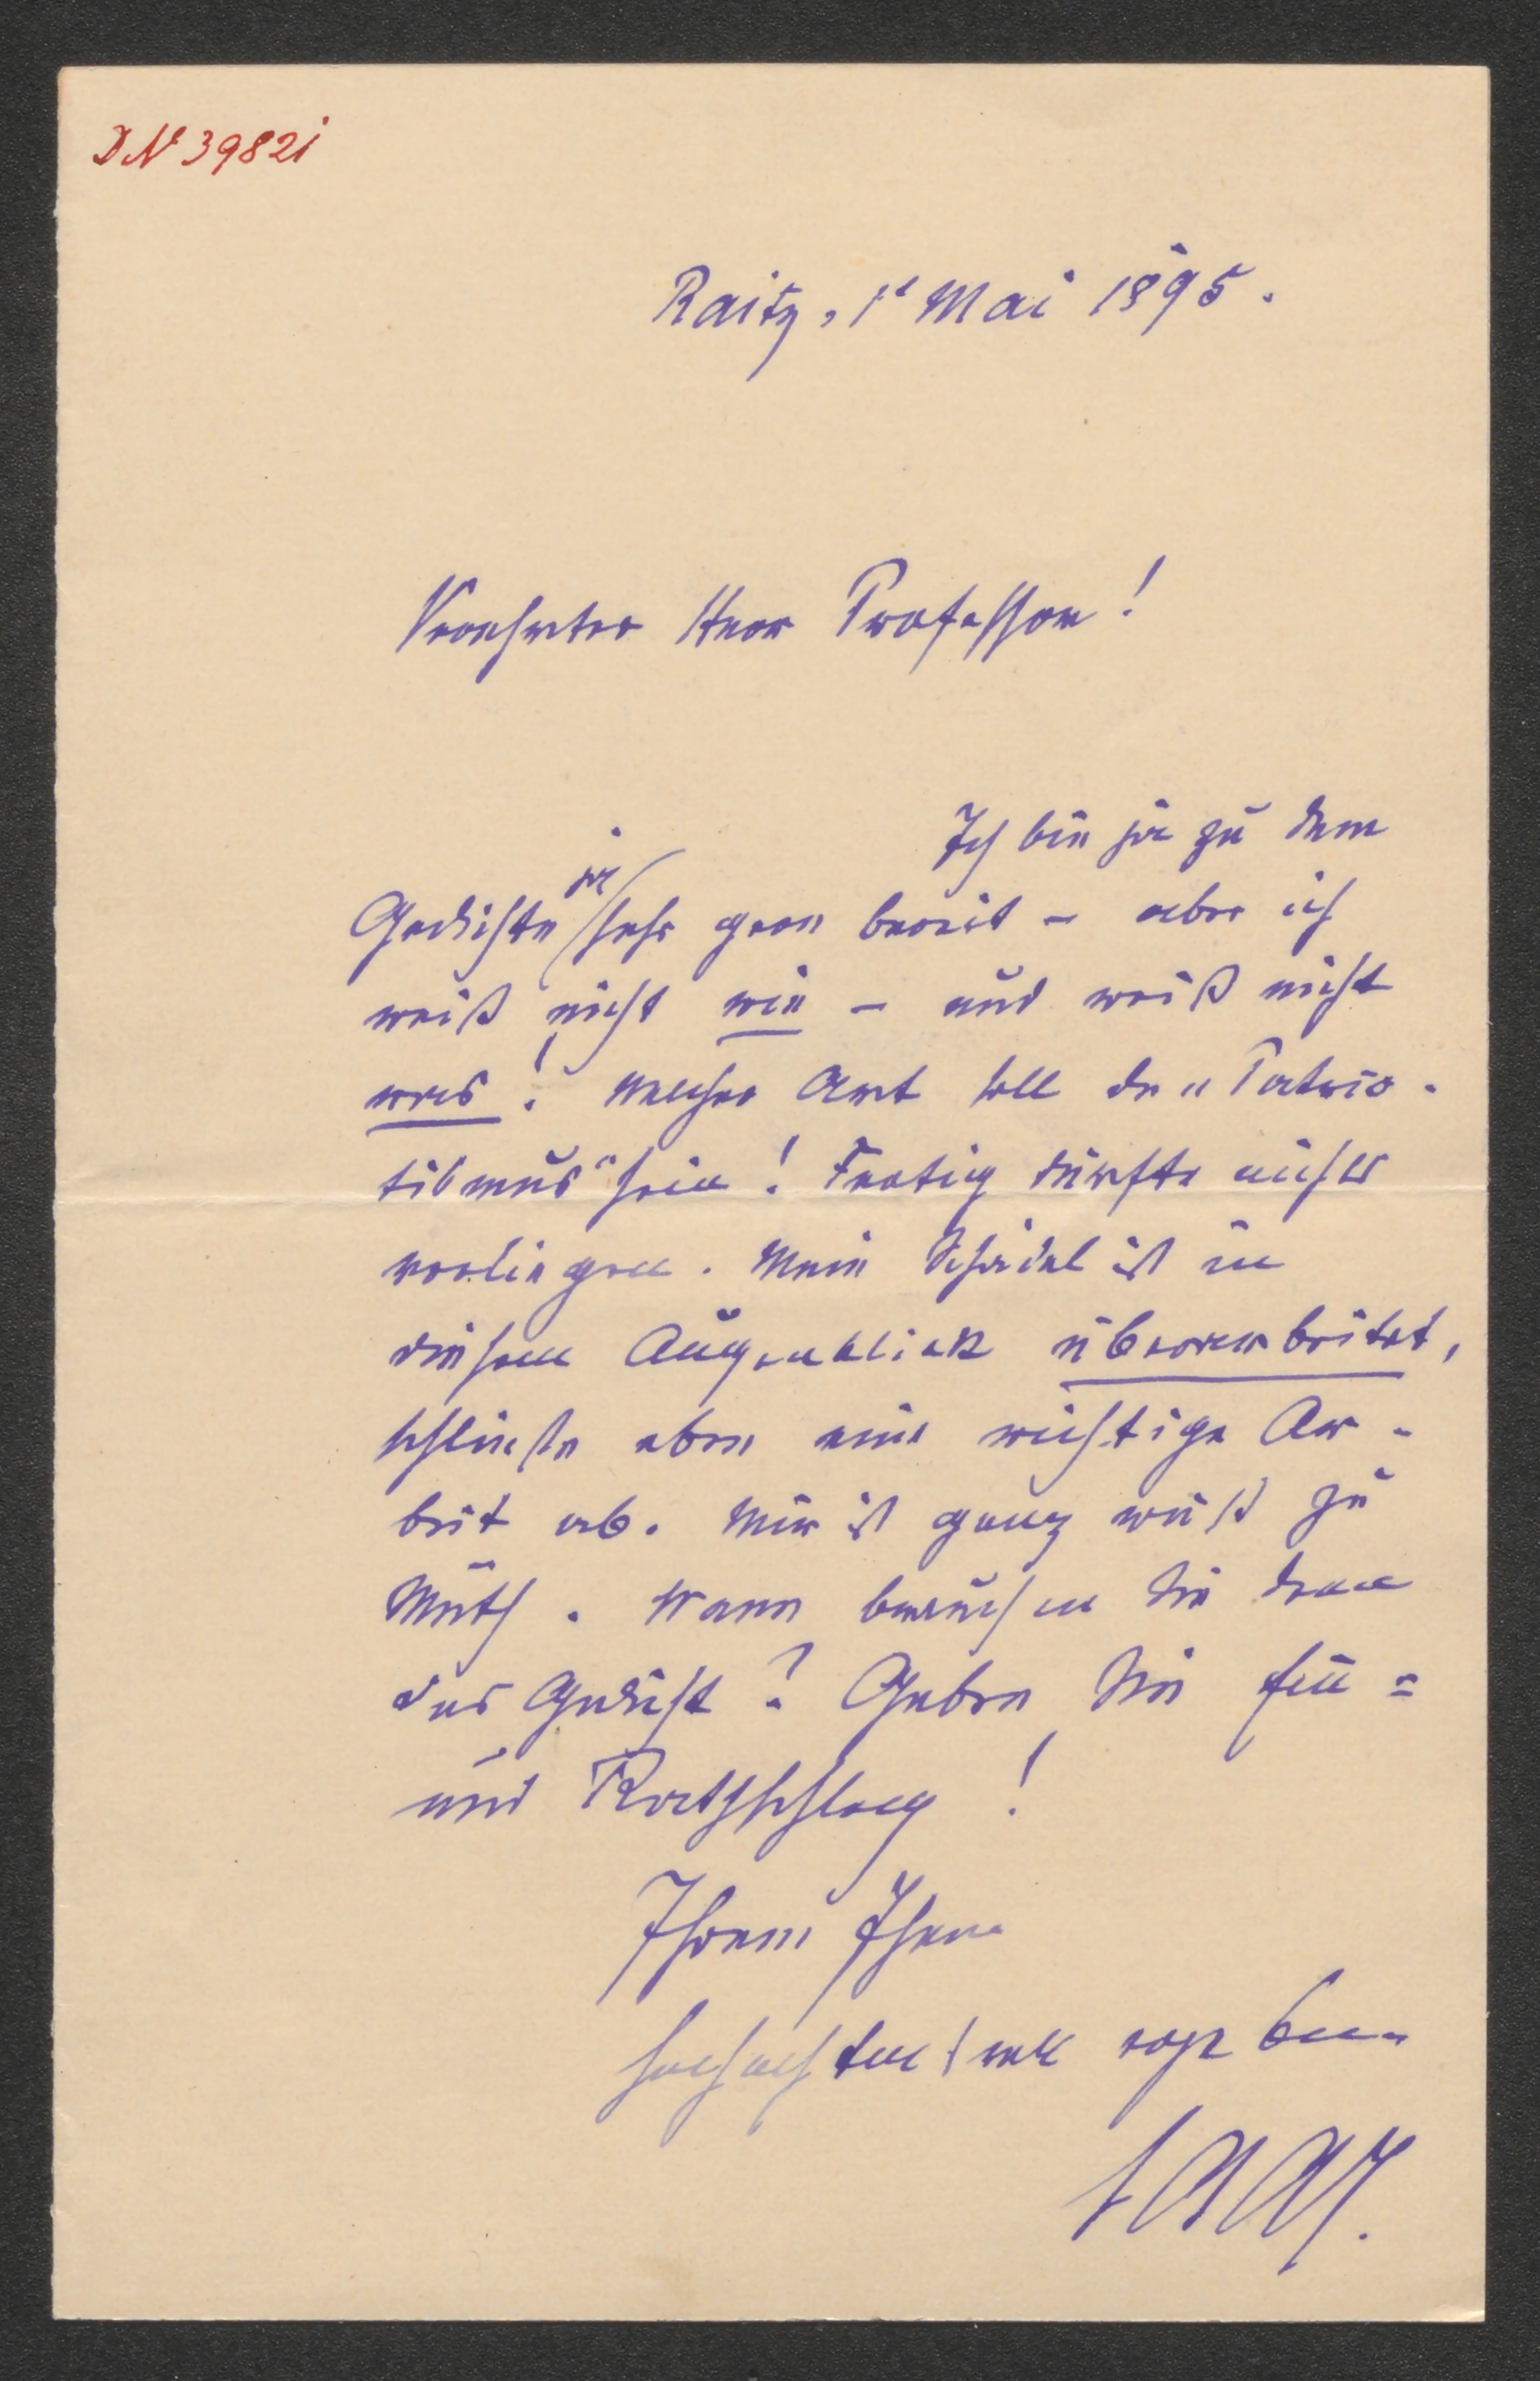 IN 39821
Raitz, 1t Mai 1895.
Verehrter Herr Professor!
Ich bin ja zu dem
Gedichte ja sehr gern bereit – aber ich
weiß nicht wie – und weiß nicht
was! Welcher Art soll der „Patrio-
tismus“ sein! Fertig dürfte nichts
vorliegen. Mein Schädel ist in
diesem Augenblick überarbeitet,
schließe eben eine wichtige Ar-
beit ab. Mir ist ganz wüst zu
Muth. Wann brauchen Sie denn
das Gedicht? Geben Sie
und Rathschlag!
Ihrem Ihnen
hochachtungsvoll ergebenen
Saar.